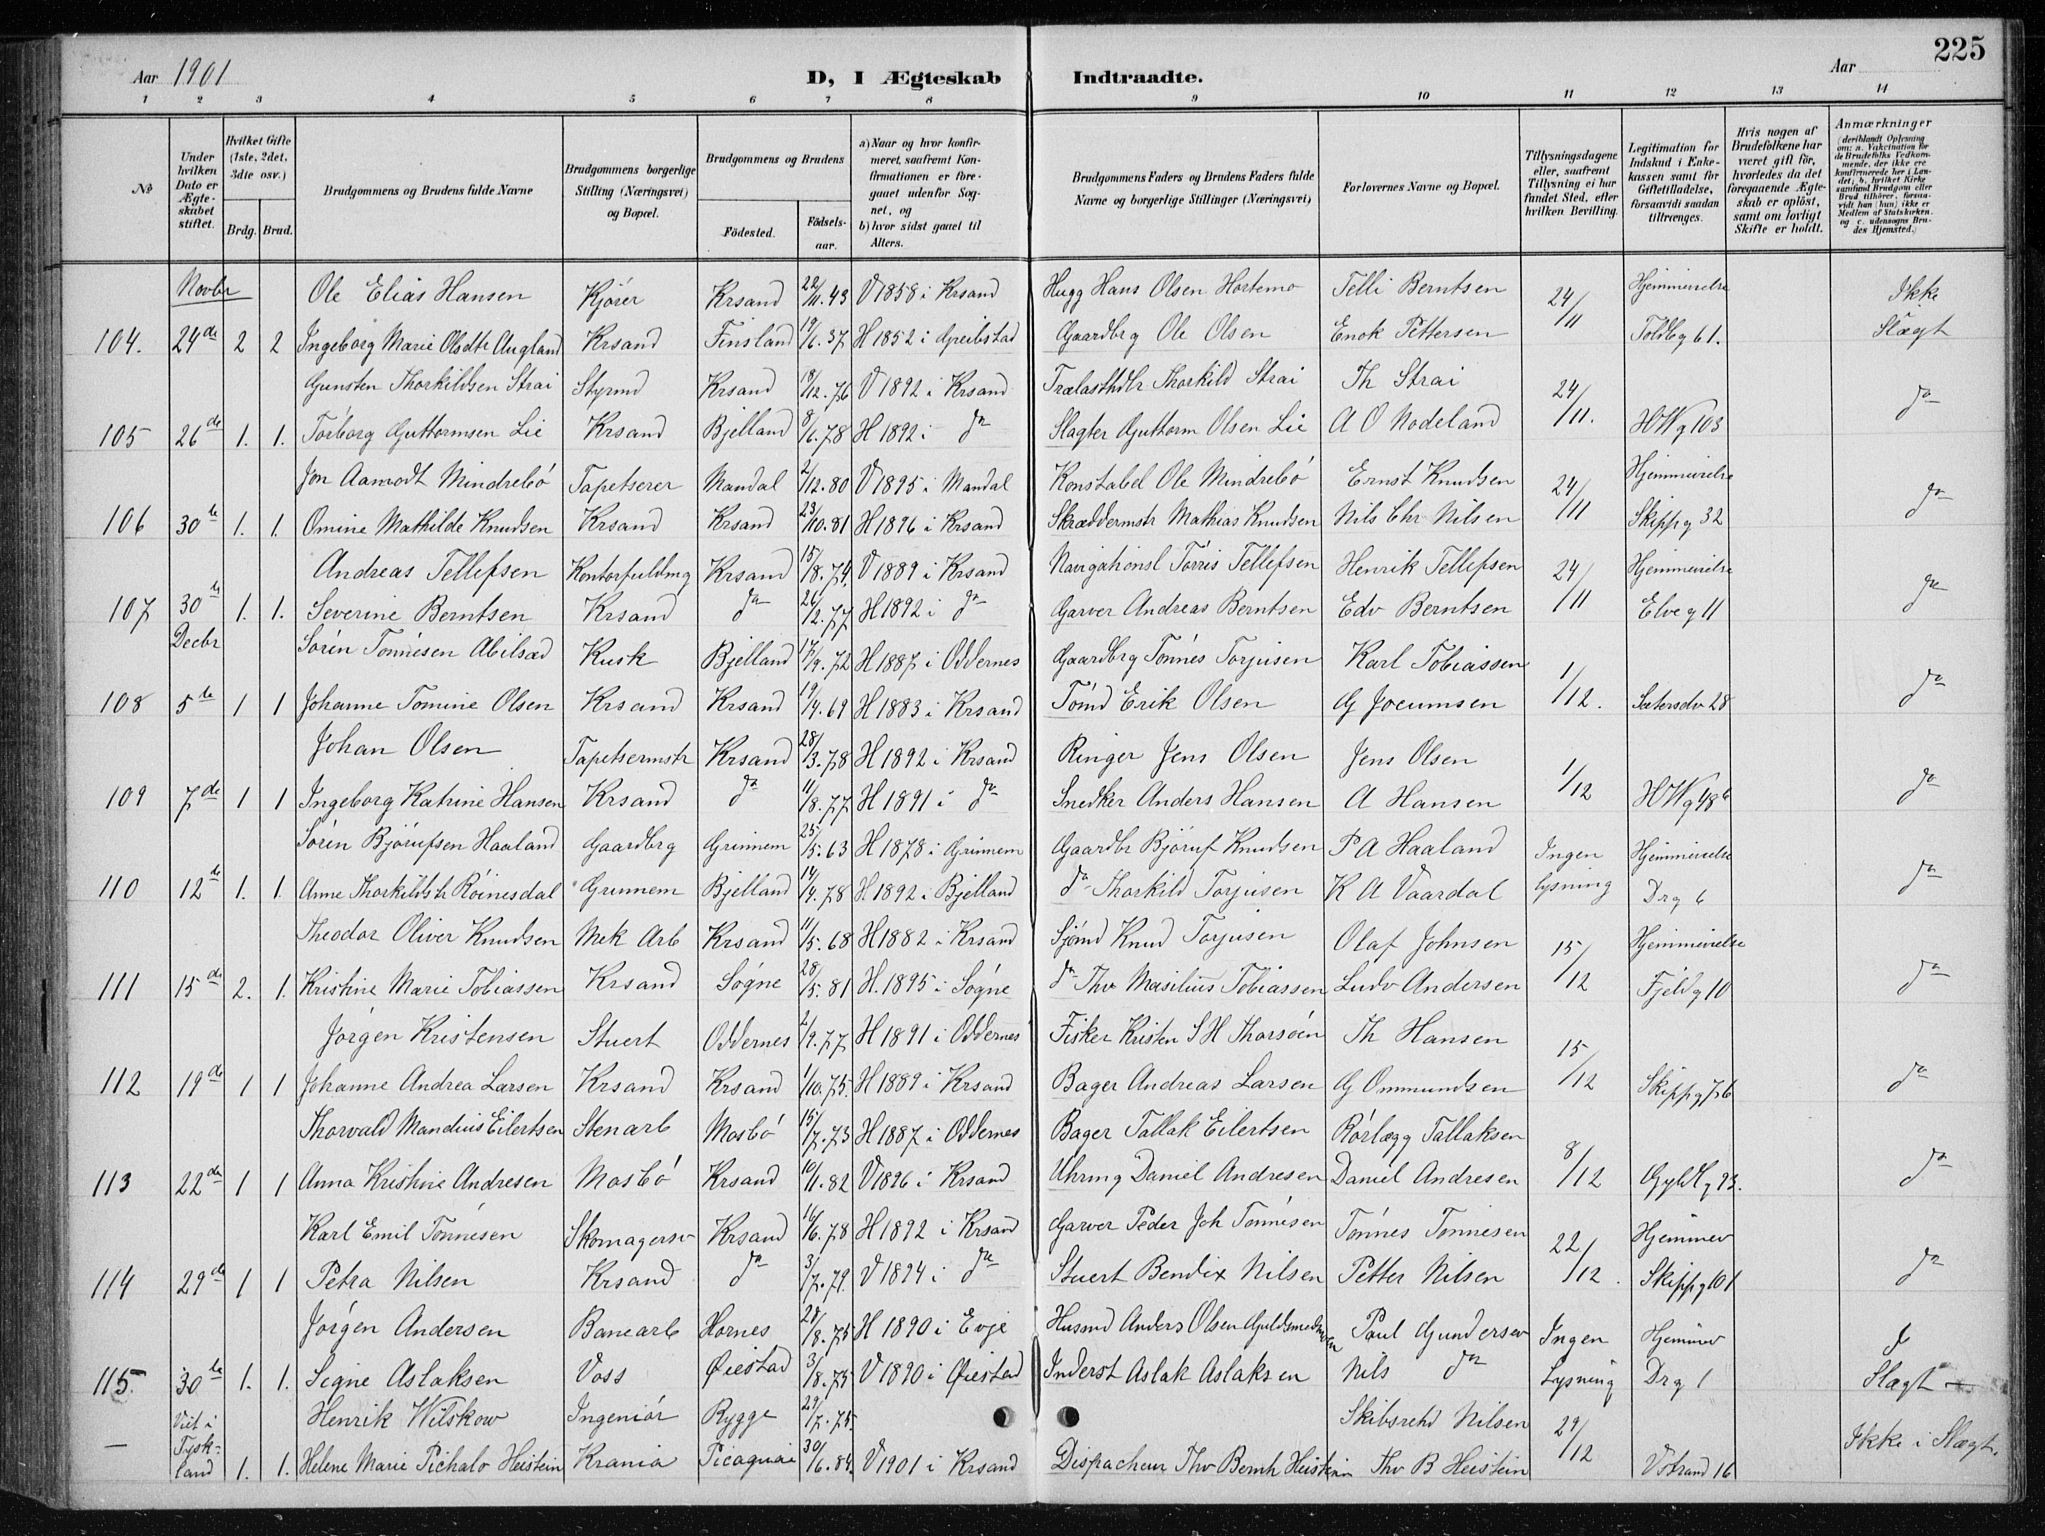 225
Aar 1901
D, I Ægteskab Indtraadte.
Aar
1 2 3 4 5 6 7 8 9 10 11 12 13 14
No
Under hvilken Dato er Ægteskabet stiftet.
Hvilket Gifte (1ste, 2det, 3dte osv.)
Brdg. Brud.
Brudgommens og Brudens fulde Navne
Brudgommens borgerlige Stilling (Næringsvei) og Bopæl.
Brudgommens og Brudens
Födested. Födselsaar.
a) Naar og hvor konfirmeret, saafremt Konfirmationen er foregaaet udenfor Sognet, og
b) hvor sidst gaaet til Alters.
Brudgommens Faders og Brudens Faders fulde Navne og borgerlige Stillinger (Næringsvei)
Forlovernes Navne og Bopæl.
Tillysningsdagene eller, saafremt Tillysning ei har fundet Sted, efter hvilken Bevilling.
Legitimation for Indskud i Enkekassen samt for Giftetilladelse, forsaavidt saadan tiltrænges.
Hvis nogen af Brudefolkene har været gift för, hvorledes da det foregaaende Ægteskab er oplöst, samt om lovligt Skifte er holdt.
Anmærkninger (deriblandt Oplysning om: a. Vakcination for de Brudefolks Vedkommende, der ikke ere konfirmerede her i Landet, b. hvilket Kirkesamfund Brudgom eller Brud tilhörer, forsaavidt han (hun) ikke er Medlem af Statskirken, og c. udensogns Brudes Hjemsted.)
Novbr Ole Elias Hansen Kjører Krsand 22/11.43 V 1858 i Krsand Hugg Hans Olsen Hortemo Telli Berntsen 24/11 Hjemmevielse Ikke
104. 24de 2 2 Ingeborg Marie Olsdtr Augland Krsand Finsland 19/6.37 H 1852 i Greibstad Gaardbrg Ole Olsen Enok Pettersen Toldbg 61. Slægt
Gunsten Thorkildsen Strai Styrmd Krsand 18/12.76 V 1892 i Krsand Trælasthdlr Thorkild Strai Th Strai 24/11. do
105 26de 1. 1. Torborg Guttormsen Lie Krsand Bjelland 8/6.78 H 1892 i do Slagter Guttorm Olsen Lie A O Nodeland HWg 103
Jon Aamodt Mindrebö Tapetserer Mandal 2/12.80 V 1895 i Mandal Konstabel Ole Mindrebö Ernst Knudsen 24/11 Hjemmevielse do
106 30te 1. 1. Omine Mathilde Knudsen Krsand Krsand 23/10.81 H 1896 i Krsand Skræddermstr Mathias Knudsen Nils Chr Nilsen Skippg 32
Andreas Tellefsen Kontorfuldmg Krsand 15/8.74. V 1889 i Krsand Navigationsl Törris Tellefsen Henrik Tellefsen 24/11 Hjemmevielse do
107 30te 1. 1. Severine Berntsen Krsand do 26/2.77 H 1892 i do Garver Andreas Berntsen Edv Berntsen Elveg 11
Decbr Sörin Tönnesen Abilsæd Kusk Bjelland 17/9.72 H 1887 i Oddernes Gaardbrg Tönnes Torjusen Karl Tobiassen 1/12. do
108 5te 1 1 Johanne Tomine Olsen Krsand Krsand 19/4.69 H 1883 i Krsand Tömd Erik Olsen G Jocumsen Sætersdv 28
Johan Olsen Tapetsermstr Krsand 28/3.78 H 1892 i Krsand Ringer Jens Olsen Jens Olsen 1/12 do
109 7de 1 1 Ingeborg Katrine Hansen Krsand do 11/8.77 H 1891 i do Snedker Anders Hansen A Hansen HWg 48b
Sörin Björufsen Haaland Gaardbrg Grinnem 25/5.63 H 1878 i Grinnem Gaardbr Björuf Knudsen P A Haaland Ingen lysning Hjemmevielse do
110 12te 1. 1. Anne Thorkildsdtr Röinesdal Grinnem Bjelland 14/4.78 H 1892 i Bjelland do Thorkild Torjusen K A Vaardal Drg 6
Theodor Oliver Knudsen Mek Arb Krsand 11/5.68 H 1882 i Krsand Sjömd Knud Torjusen Olaf Johnsen 15/12 Hjemmevielse do
111 15de 2. 1. Kristine Marie Tobiassen Krsand Sögne 28/5.81 H. 1895 i Sögne do Thv Masilius Tobiassen Ludv Andersen Fjeldg 10
Jörgen Kristensen Stuert Oddernes 2/9.77 H 1891 i Oddernes Fisker Kristen S H Thorsöen Th Hansen 15/12 do
112 19de 1 1 Johanne Andrea Larsen Krsand Krsand 1/10.75. H 1889 i Krsand Bager Andreas Larsen G Ommundsen Skippg 76
Thorvald Mandius Eilertsen Stenarb Mosbö 15/7.73 H 1887 i Oddernes Bager Tallak Eilertsen Rörlægg Tallaksen 8/12 do
113 22de 1 1 Anna Kristine Andresen Mosbö Krsand 10/11.82 V 1896 i Krsand Uhrmg Daniel Andresen Daniel Andresen Gyldlg 93.
Karl Emil Tönnesen Skomagersv Krsand 16/6.78 H 1892 i Krsand Garver Peder Joh Tönnesen Tönnes Tönnesen 22/12. Hjemmev do
114 29de 1 1 Petra Nilsen Krsand do 3/7.79. V 1894 i do Stuert Bendix Nilsen Petter Nilsen Skippg 101
Jörgen Andersen Banearb Hornes 28/8.75 H 1890 i Evje Husmd Anders Olsen Guldsmedmoen Paul Gundersen Ingen Lysning Hjemmev I
115. 30te 1. 1. Signe Aslaksen Voss Øiestad 3/8.75 V 1890 i Øiestad Inderst Aslak Aslaksen Nils do Drg 1 Slægt
Viet i Tyskland Henrik Wilskow Ingeniör Rygge 29/7.75. Skibsrehd Nilsen 29/12 Ikke i Slægt.
— 1. 1. Helene Marie Pichalo Heistein Krania Picaguai 30/6.84. V 1901 i Krsand Dispacheur Thv Bernh Heistein Thv B Heistein Vstrand 16